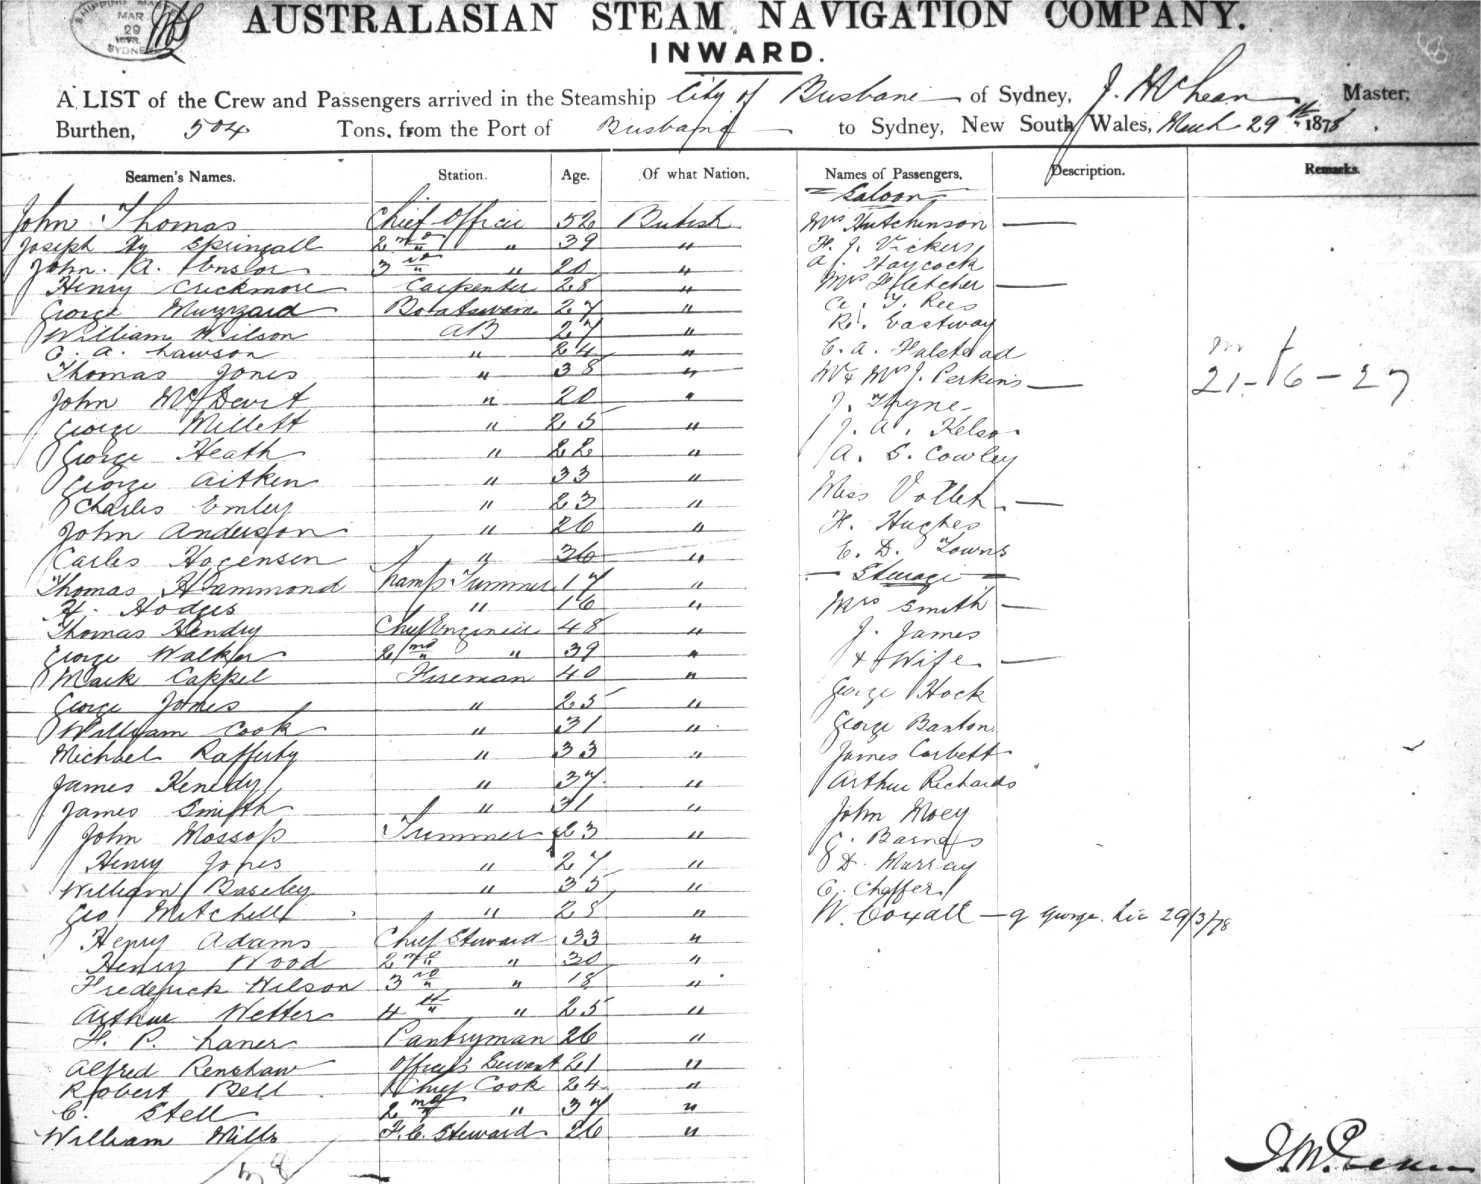 SHIPPING MASTER
MAR
29
1878
SYDNEY
AUSTRALASIAN STEAM NAVIGATION COMPANY.
INWARD.
A LIST of the Crew and Passengers arrived in the Steamship City of Brisbane of Sydney, J. McLean Master,
Burthen, 504 Tons, from the Port of Brisbane to Sydney, New South Wales, March 29th 1878.
Seamen's Names. Station. Age. Of what Nation. Names of Passengers. Description. Remarks.
Saloon
John Thomas Chief Officer 52 British Mrs Hutchinson —
Joseph Hy Springall 2nd " 39 " H. J. Vickers
John. A. Enslor 3rd " 20 " A. J. Haycock
Henry Crickmore Carpenter 28 " Mrs Fletcher —
George Muzzard Boatswain 27 " C. T. Rees
William Wilson AB 27 " R. Eastway
C. A. Lawson " 24 " E. A. Halstead
Thomas Jones " 38 " Mr & Mrs J. Perkins —
21-6-27
John McDevit " 20 " J. Thyne
George Millett " 25 " J. A. Kelso
George Heath " 22 " A. S. Cowley
George Aitken " 33 " Miss —
Charles Emley " 23 " H. Hughes
John Anderson " 26 " E. D. Towns
Carles Hogensen " 36 " — Steerage —
Thomas Hammond Lamp Trimmer 17 " Mrs Smith —
H. Hodges " 16 " J. James
Thomas Hendry Chief Engineer 48 " & Wife —
George Walker 2nd " 39 " George Hock
Mark Cappel Fireman 40 " George Banton
George Jones " 25 " James Corbett
William Cook " 31 " Arthur Richards
Michael Rafferty " 33 " John Moey
James Kenedy " 37 " G. Barnes
James Smith " 31 " D. Murray
John Mossop Trimmer 23 " C. Chaffer
Henry Jones " 27 " W. Coxall — g George. Lic 29/3/78
William Baseley " 35 "
Geo Mitchell " 28 "
Henry Adams Chief Steward 33 "
Henry Wood 2nd " 30 "
Frederick Wilson 3rd " 18 "
Arthur Wetter 4th " 25 "
H. P. Laner Pantryman 26 "
Alfred Renshaw Officers Servant 21 "
Robert Bell Chief Cook 24 "
C. Stell 2nd " 37 "
William Mills F. C. Steward 26 "
J. McLean